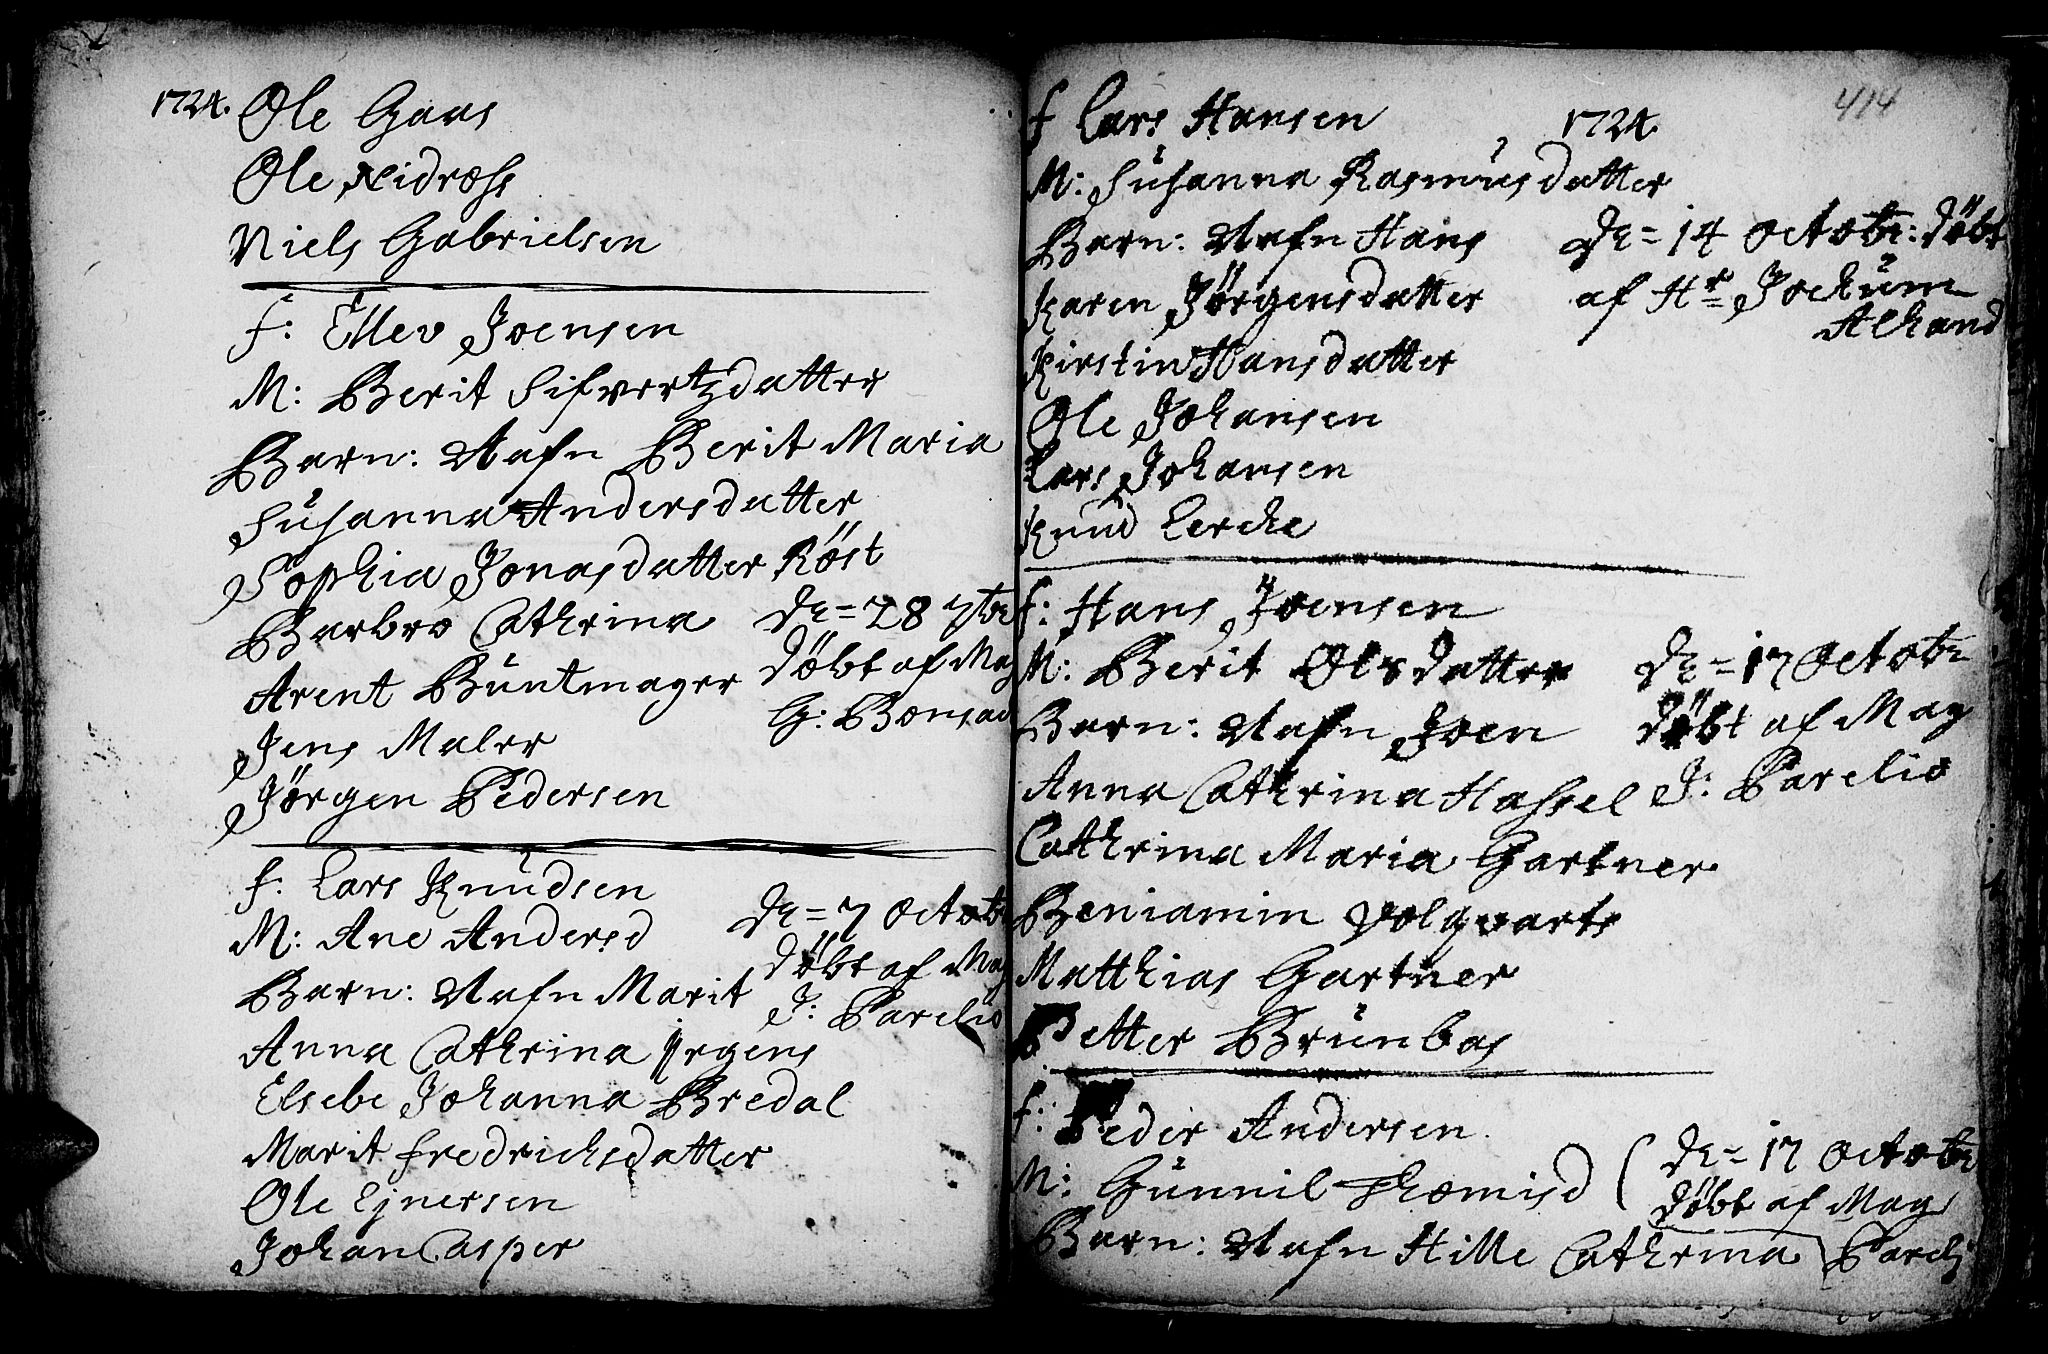 1724. Ole Gaas
Ole Nidross
Niels Gabrielsen
f: Ellev Joensen
M: Berit Sifvertzdatter
Barn: Nafn Berit Maria
Susanna Andersdatter
Sophia Jonasdatter Röst
Barbro Cathrina
Arent Buntmager
Jens Maler
Jörgen Pedersen
d = 28 7br
döbt af Mag
G: Bonsac
f: Lars Knudsen
M: Ane Andersd
Barn: Nafn Marit
Anna Cathrina Jrgens
Elsebe Johanna Bredal
Marit fredrichsdatter
Ole Ejnersen
Johan Casper
d = 7 Octob
döbt af Mag
J: Parelio
414
1724
f Lars Hansen
M: Susanna Rasmusdatter
Barn: Nafn Hans
Karen Jörgensdatter
Kirstin Hansdatter
Ole Johansen
Lars Johansen
Knud Lerche
d = 14 Octobr: döbt
af Hr Jochum
Alhand
f: Hans Joensen
M: Berit Olsdatter
Barn: Nafn Joen
Anna Cathrina Hassel
Cathrina Maria Gartner
Beniamin Volqvarts
Matthias Gartner
Petter Brunbas
d = 17 Octobr
döbt af Mag
J: Parelio
f: Peder Andersen
M: Gunnil Thomisd
Barn: Nafn Hille Cathrina
d = 17 Octobr
döbt af Mag
Parelj